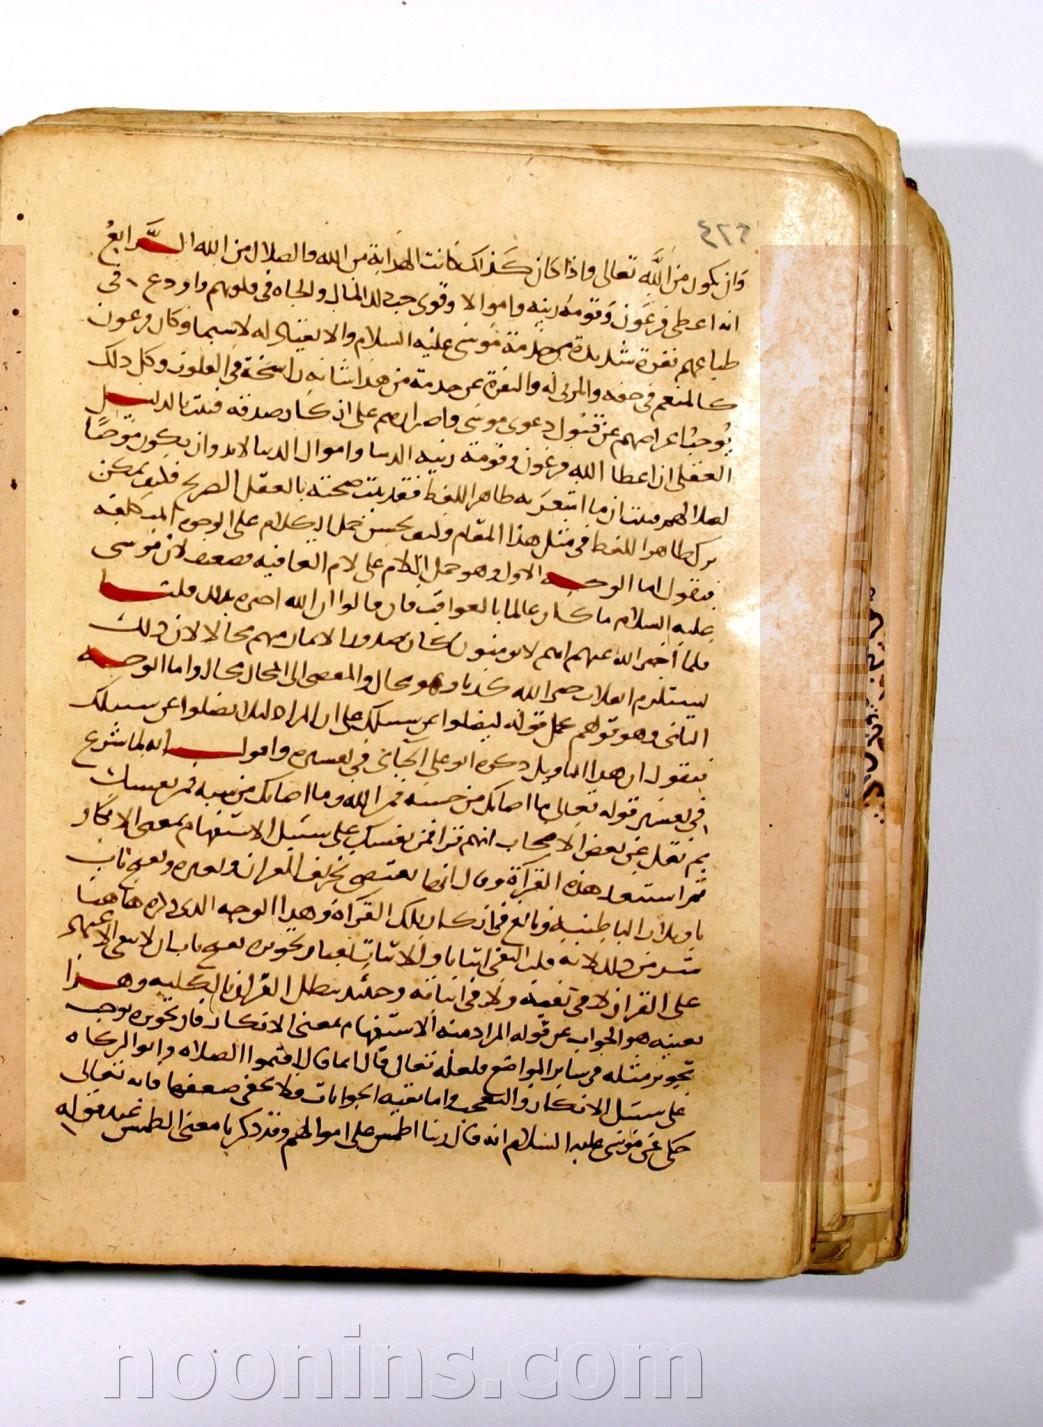 ٤٦٦
وان يكون من الله تعالى واذا كان كذلك كانت الهداية من الله والضلال من الله الرابع
انه اعطى فرعون وقومه زينة واموالا وقوى حب ذلك المال والجاه في قلوبهم واودع في
طباعهم نفرة شديدة عن خدمة موسى عليه السلام والانقياد له لا سيما وكان فرعون
كالمنعم في حقه والمربى له والنفرة عن خدمة من هذا شانه راسخة في القلوب وكل ذلك
يوجب اعراضهم عن قبول دعوى موسى واصرارهم على انكار صدقه فثبت بالدليل
العقلى ان اعطا الله فرعون وقومه زينة الدنيا واموال الدنيا لابد وان يكون موجبا
لضلالهم فثبت ان ما اشعر به ظاهر اللفظ فقد ثبت صحته بالعقل الصريح فكيف يمكن
ترك ظاهر اللفظ في مثل هذا المقام وكيف يحسن حمل الكلام على الوجوه المتكلفة
فنقول اما الوجه الاول وهو حمل اللام على لام العاقبة فضعيف لان موسى
عليه السلام ما كان عالما بالعواقب فان قالوا ان الله اخبره بذلك قلنا
فلما اخبر الله عنهم انهم لا يومنون كان صدور الايمان منهم محالا لان ذلك
يستلزم انقلاب خبر الله كذبا وهو محال والمفضى الى المحال محال واما الوجه
الثاني وهو قولهم يحمل قوله ليضلوا عن سبيلك على ان المراد لئلا يضلوا عن سبيلك
فنقول ان هذا التاويل ذكره ابو على الجبائى في تفسيره واقول انه لما شرع
في تفسير قوله تعالى ما اصابك من حسنة فمن الله وما اصابك من سيئة فمن نفسك
ثم نقل عن بعض الاصحاب انهم قرا فمن نفسك على سبيل الاستفهام بمعنى الانكار
ثم استبعد هذه القراة وقال انها تقتضى تحريف القران وتغييره وتفتح باب
تاويلات الباطنية وبالغ في انكار تلك القراة وهذا الوجه الذي ذكره هاهنا
شر من ذلك لانه قلب النفى اثباتا والاثبات نفيا وتجويزه يفتح باب ان لا يبقى الاعتماد
على القران لا في نفيه ولا في اثباته وحينئذ يبطل القران بالكلية وهذا
بعينه هو الجواب عن قوله المراد منه الاستفهام بمعنى الانكار فان تجويزه يوجب
تجويز مثله في ساير المواضع فلعله تعالى قال انما قال اقيموا الصلاة واتوا الزكاة
على سبيل الانكار والتعجب واما بقية الجوابات فلا يخفى ضعفها فانه تعالى
حكى عن موسى عليه السلام انه قال ربنا اطمس على اموالهم وقد ذكرنا معنى الطمس عند قوله
www.noonins.com
noonins.com